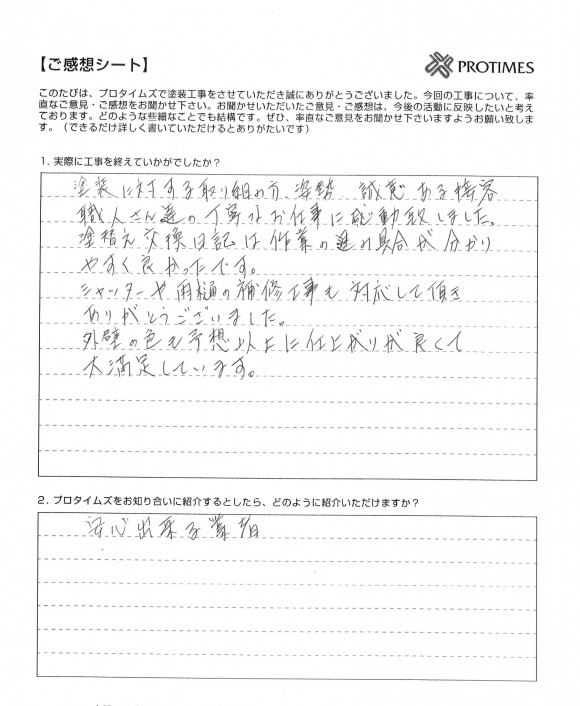 【ご感想シート】
PROTIMES
このたびは、プロタイムズで塗装工事をさせていただき誠にありがとうございました。今回の工事について、率
直なご意見・ご感想をお聞かせ下さい。お聞かせいただいたご意見・ご感想は、今後の活動に反映したいと考え
ております。どのような些細なことでも結構です。ぜひ、率直なご意見をお聞かせ下さいますようお願い致しま
す。（できるだけ詳しく書いていただけるとありがたいです）
1. 実際に工事を終えていかがでしたか？
塗装に対する取り組み方、姿勢、誠意ある接客
職人さん達の丁寧なお仕事に感動致しました。
塗替え交換日記は作業の進み具合が分かり
やすく良かったです。
シャッターや雨樋の補修工事も対応して頂き
ありがとうございました。
外壁の色も予想以上に仕上がりが良くて
大満足しています。
2. プロタイムズをお知り合いに紹介するとしたら、どのように紹介いただけますか？
安心出来る業者